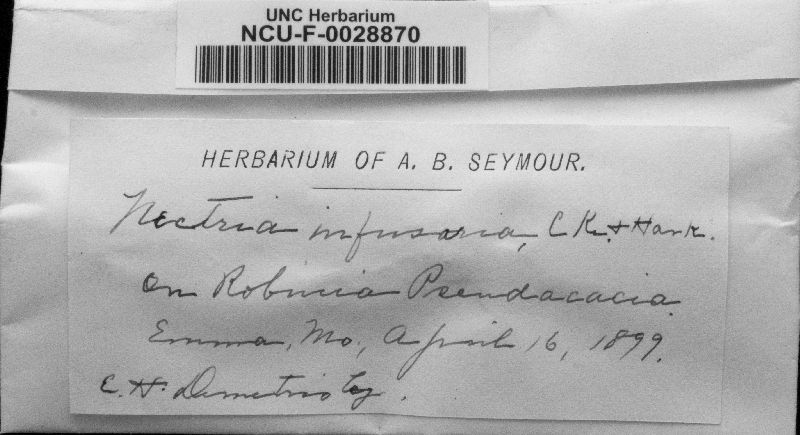 UNC Herbarium
NCU-F-0028870
HERBARIUM OF A. B. SEYMOUR.
Nectria infusaria, C K. & Hark.
on Robinia Pseudacacia
Emma, Mo., April 16, 1899.
E. H. Demetrio Leg.